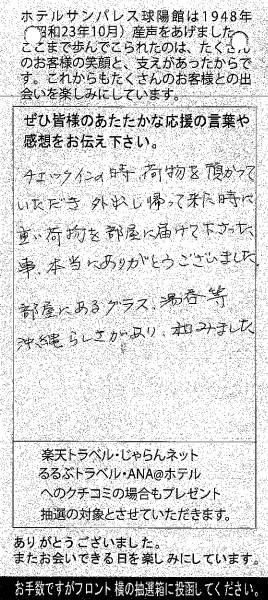 ホテルサンパレス球陽館は1948年
昭和23年10月）産声をあげました
ここまで歩んでこられたのは、たくさん
のお客様の笑顔と、支えがあったからで
す。これからもたくさんのお客様との出
会いを楽しみにしています。
ぜひ皆様のあたたかな応援の言葉や
感想をお伝え下さい。
チェックインの時、荷物を預かって
いただき 外出し帰って来た時に
重い荷物を部屋に届けて下さった
事、本当にありがとうございました
部屋にあるグラス、湯呑等
沖縄らしさがあり、和みました
楽天トラベル・じゃらんネット
るるぶトラベル・ANA@ホテル
へのクチコミの場合もプレゼント
抽選の対象とさせていただきます。
ありがとうございました。
またお会いできる日を楽しみにしています。
お手数ですがフロント横の抽選箱に投函してください。